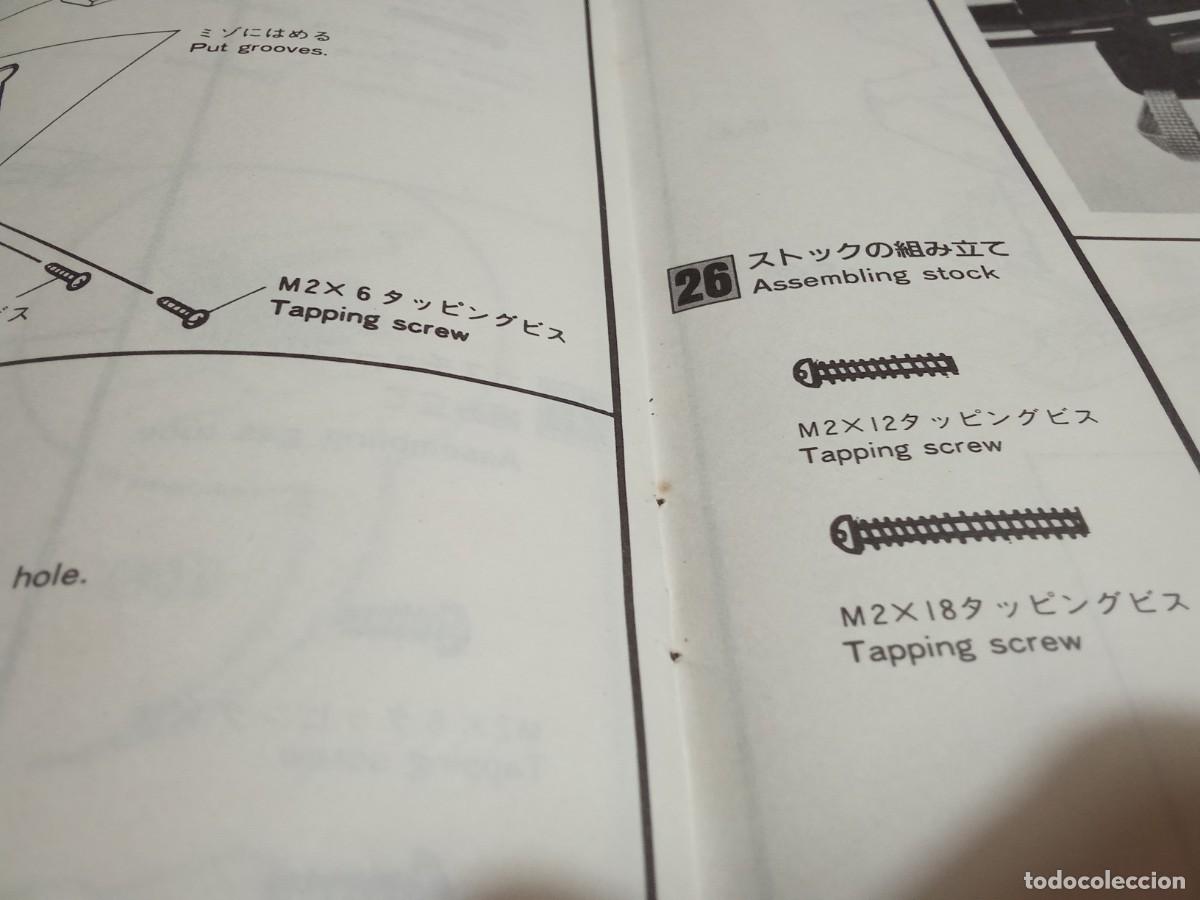 ミゾにはめる
Put grooves.
M2×6タッピングビス
Tapping screw
ビス
hole.
26
ストックの組み立て
Assembling stock
M2×12タッピングビス
Tapping screw
M2×18タッピングビス
Tapping screw
todocoleccion